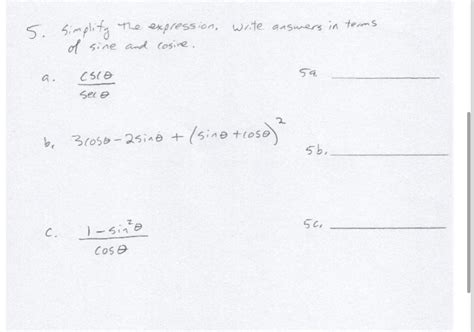 5. Simplify the expression. Write answers in terms
of sine and cosine.
a. cscθ / secθ
5a
b. 3cosθ - 2sinθ + (sinθ + cosθ)²
5b.
c. 1 - sin²θ / cosθ
5c.